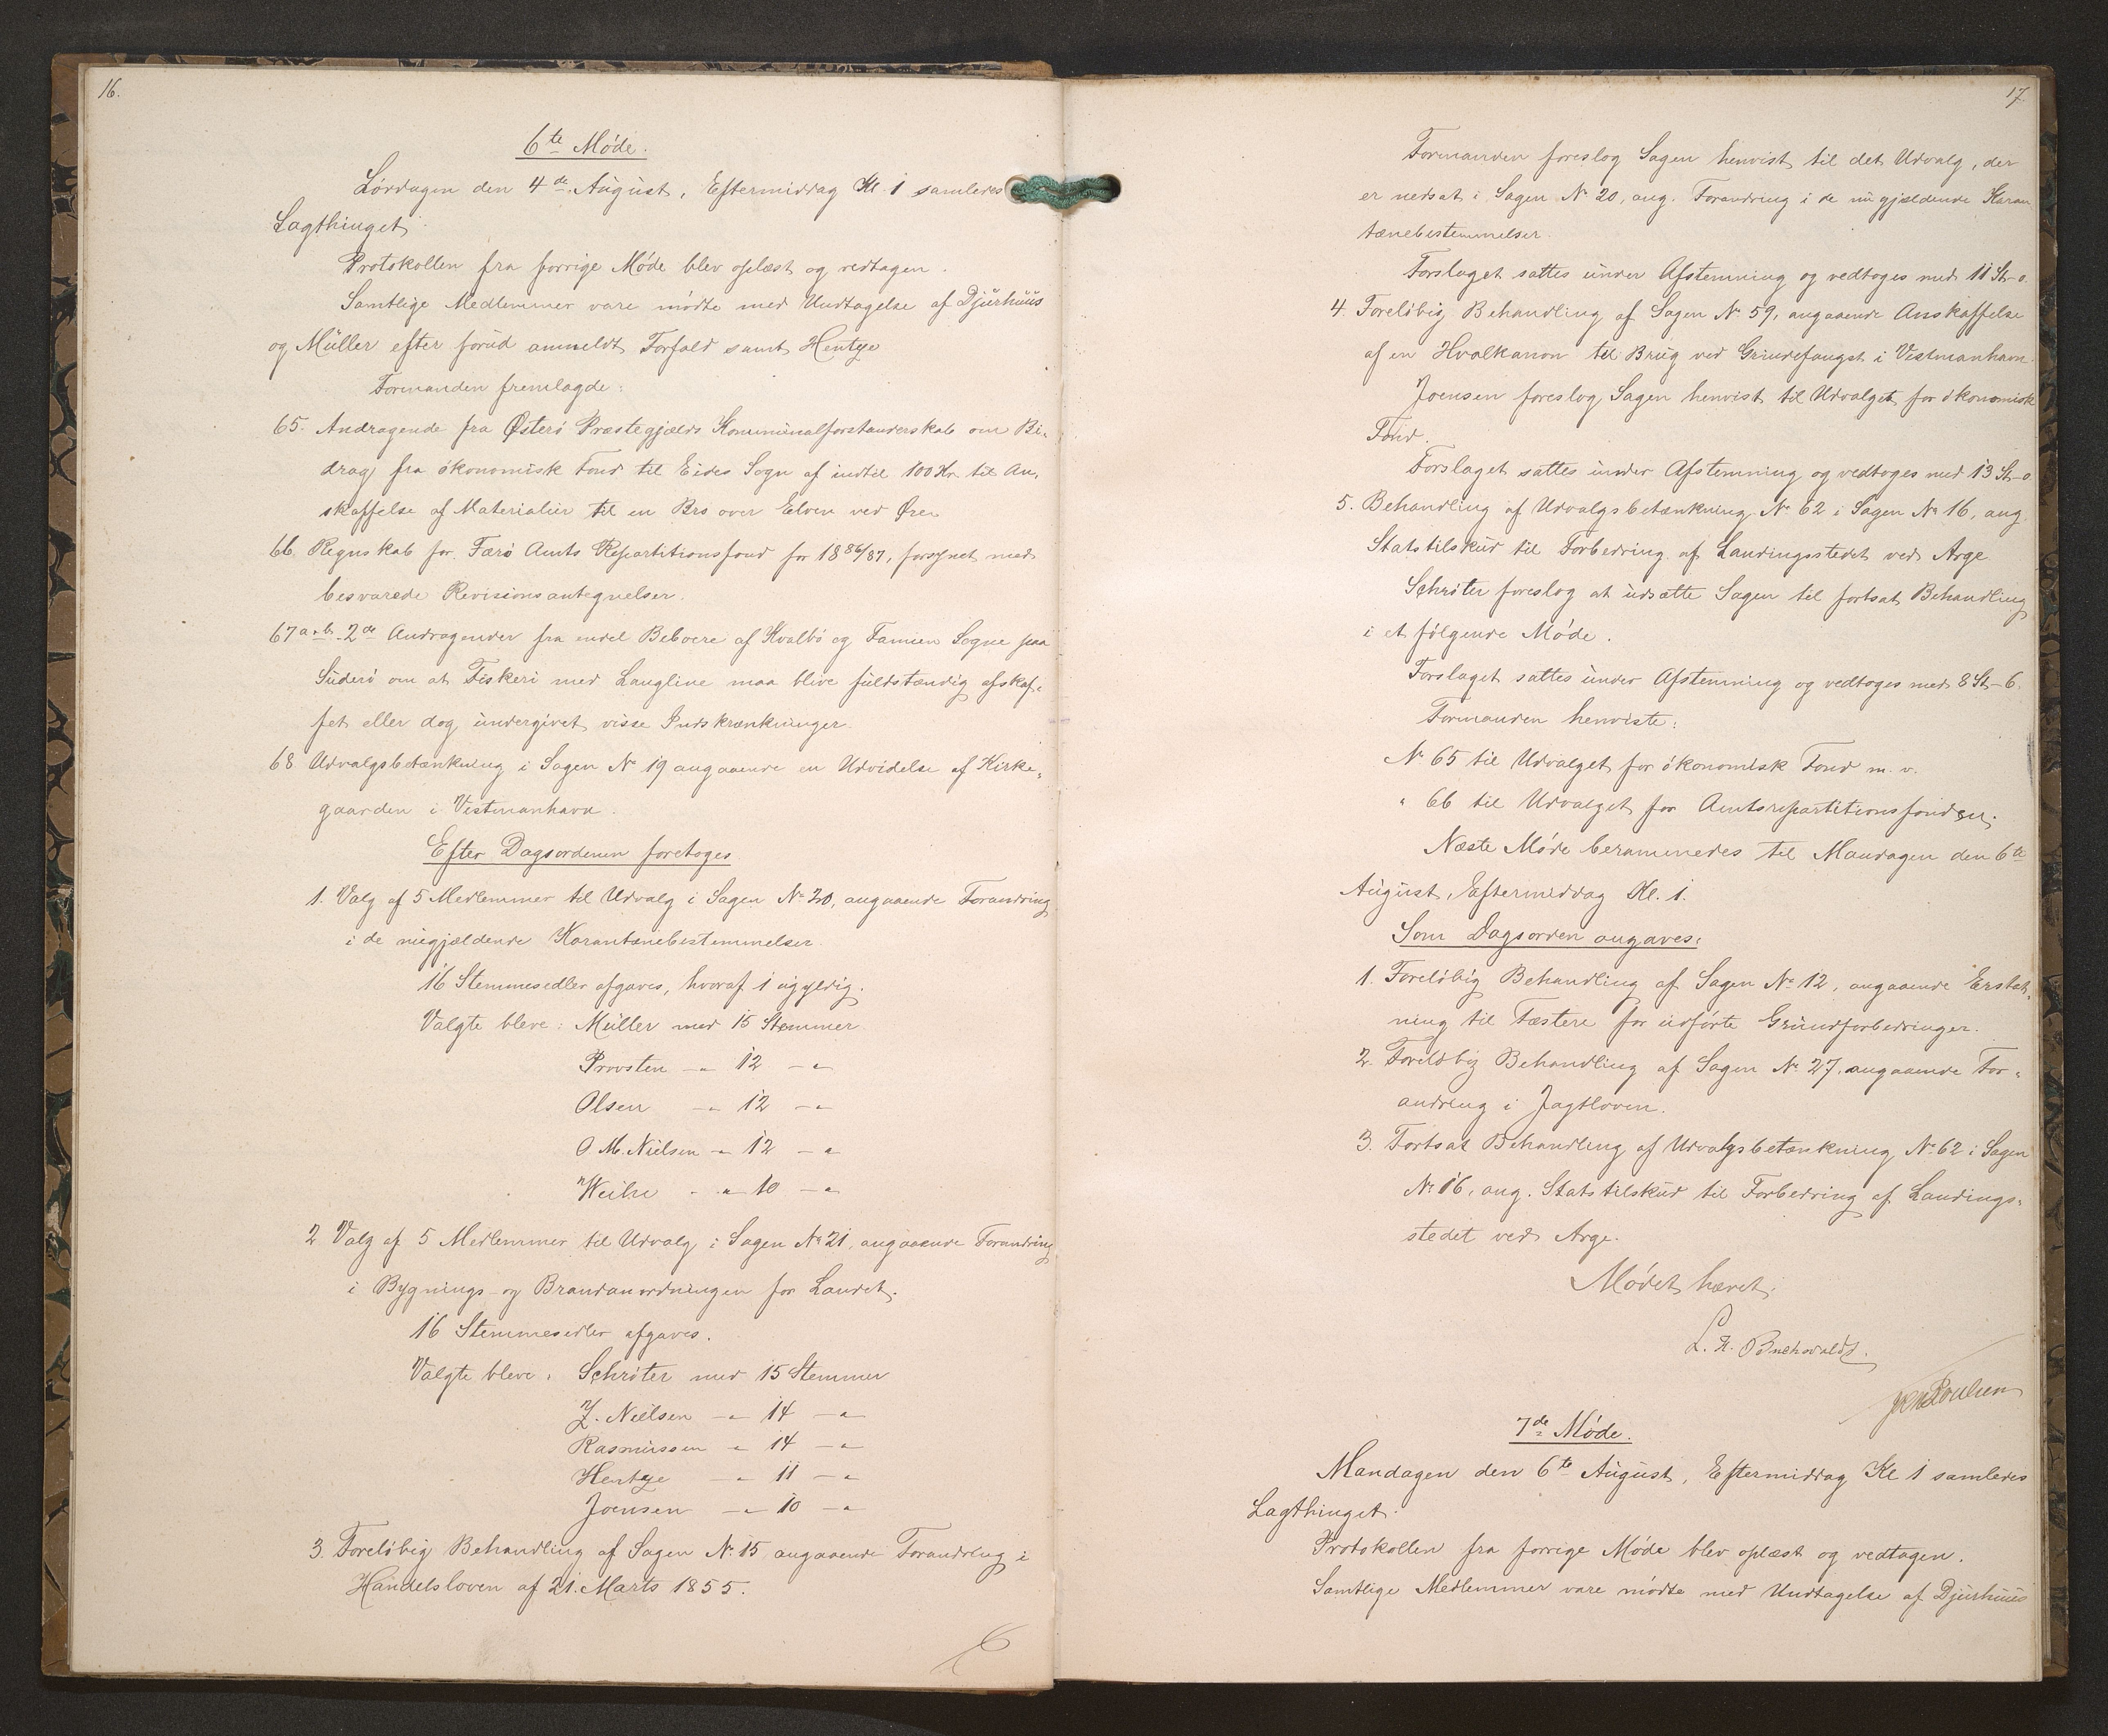 16.
6te Møde.
Lørdagen den 4de August, Eftermiddag Kl. 1 samledes
Lagthinget.
Protokollen fra forrige Møde blev oplæst og vedtagen.
Samtlige Medlemmer vare mødte med Undtagelse af Djurhuus
og Müller efter forud anmeldt Forfald samt Hentze
Formanden fremlagde:
65. Andragende fra Østerø Præstegjælds Kommunalforstanderskab om Bi-
drag fra økonomisk Fond til Eides Sogn af indtil 100 Kr. til An-
skaffelse af Materialier til en Bro over Elven ved Øre.
66. Regnskab for Færø Amts Repartitionsfond for 1886/87, forsynet med
besvarede Revisionsantegnelser.
67 a & b. 2de Andragender fra endel Beboere af Kvalbø og Famien Sogne paa
Suderø om at Fiskeri med Langline maa blive fuldstændig afskaf-
fet eller dog undergivet visse Indskrænkninger.
68. Udvalgsbetænkning i Sagen No 19 angaaende en Udvidelse af Kirke-
gaarden i Vestmanhavn.
Efter Dagsordenen foretoges
1. Valg af 5 Medlemmer til Udvalg i Sagen No 20, angaaende Forandring
i de nugjældende Karantænebestemmelser.
16 Stemmesedler afgaves, hvoraf 1 ugyldig.
Valgte bleve: Müller med 15 Stemmer
Provsten - " 12 - "
Olsen - " 12 - "
O. M. Nielsen - " 12 - "
Weihe - " 10 - "
2. Valg af 5 Medlemmer til Udvalg i Sagen No 21, angaaende Forandring
i Bygnings- og Brandanordningen for Landet.
16 Stemmesedler afgaves.
Valgte bleve: Schrøter med 15 Stemmer
Z. Nielsen - " 14 - "
Rasmussen - " 14 - "
Hentze - " 11 - "
Joensen - " 10 - "
3. Foreløbig Behandling af Sagen No 15 angaaende Forandring i
Handelsloven af 21. Marts 1855.
17.
Formanden foreslog Sagen henvist til det Udvalg, der
er nedsat i Sagen No 20, ang. Forandring i de nugjældende Karan
tænebestemmelser.
Forslaget sattes under Afstemning og vedtoges med 11 St-0.
4. Foreløbig Behandling af Sagen No 59, angaaende Anskaffelse
af en Hvalkanon til Brug ved Grindefangst i Vestmanhavn.
Joensen foreslog Sagen henvist til Udvalget for økonomisk
Fond.
Forslaget sattes under Afstemning og vedtoges med 13 St-0
5. Behandling af Udvalgsbetænkning No 62 i Sagen No 16, ang.
Statstilskud til Forbedring af Landingsstedet ved Arge
Schrøter foreslog at udsætte Sagen til fortsat Behandling
i et følgende Møde.
Forslaget sattes under Afstemning og vedtoges med 8 St-6.
Formanden henviste:
No 65 til Udvalget for økonomisk Fond m. v.
" 66 til Udvalget for Amtsrepartitionsfonden.
Næste Møde berammedes til Mandagen den 6te
August, Eftermiddag Kl. 1.
Som Dagsorden angaves:
1. Foreløbig Behandling af Sagen No 12, angaaende Erstat-
ning til Fæstere for udførte Grundforbedringer.
2. Foreløbig Behandling af Sagen No 27, angaaende For-
andring i Jagtloven.
3. Fortsat Behandling af Udvalgsbetænkning No 62 i Sagen
No 16, ang. Statstilskud til Forbedring af Landings-
stedet ved Arge.
Mødet hævet.
L. H. Buchwaldt.
Poulsen
7de Møde.
Mandagen den 6te August, Eftermiddag Kl 1 samledes
Lagthinget.
Protokollen fra forrige Møde blev oplæst og vedtagen.
Samtlige Medlemmer vare mødte med Undtagelse af Djurhuus